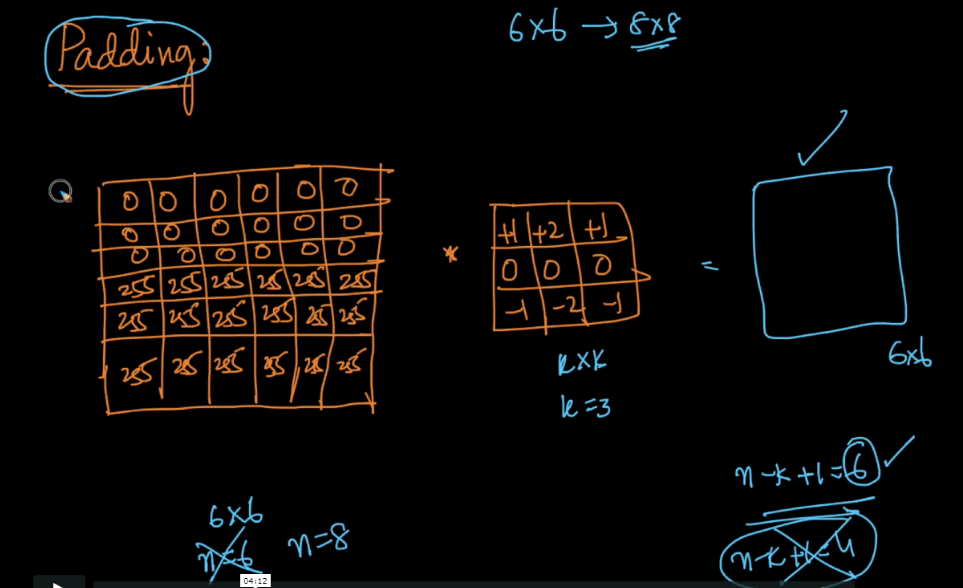 6x6 → 8x8
Padding:
0 0 0 0 0 0
0 0 0 0 0 0
0 0 0 0 0 0
255 255 255 255 255 255
255 255 255 255 255 255
255 255 255 255 255 255
*
+1 +2 +1
0 0 0
-1 -2 -1
=
6x6
kxk
k=3
n-k+1=6
n-k+1=4
6x6
n=6 n=8
04:12